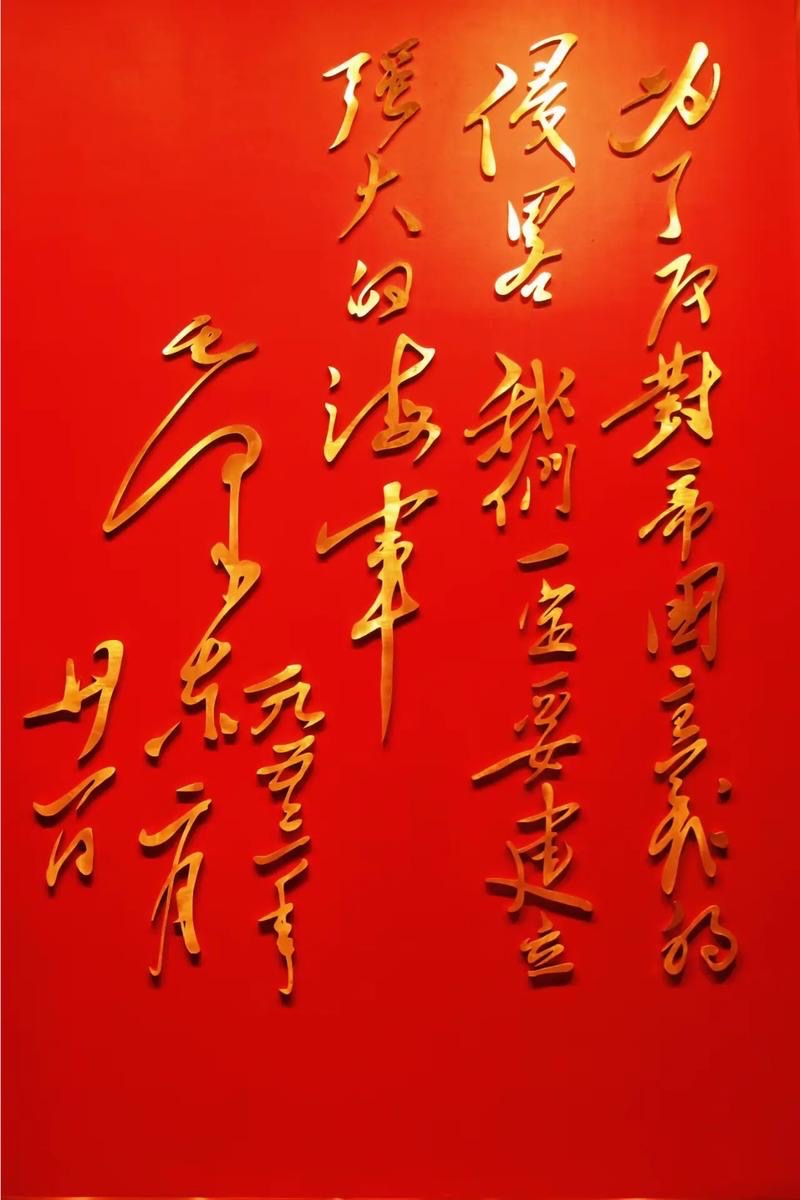 为了反對帝國主義的
侵畧我們一定要建立
强大的海軍
毛泽东
一九五三年
二月
廿一日